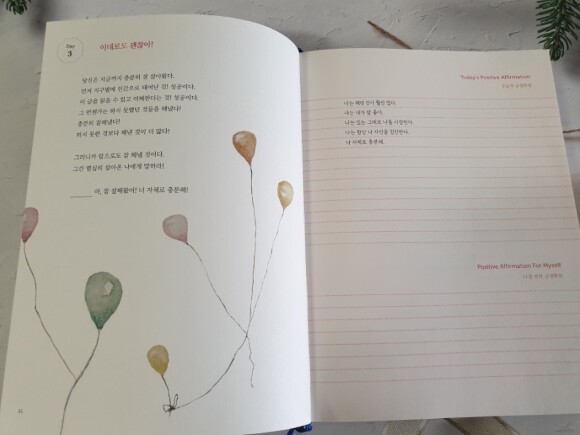 Day
3
이대로도 괜찮아!
당신은 지금까지 충분히 잘 살아왔다.
먼저 지구별에 인간으로 태어난 것! 성공이다.
이 글을 읽을 수 있고 이해한다는 것! 성공이다.
그 언젠가는 하지 못했던 것들을 해냈다!
충분히 잘해냈다!
하지 못한 것보다 해낸 것이 더 많다!
그러니까 앞으로도 잘 해낼 것이다.
그간 열심히 살아온 나에게 말하라!
아, 잘 살해왔어! 너 자체로 충분해!
Today's Positive Affirmation
오늘의 긍정확언
나는 해낸 것이 훨씬 많다.
나는 내가 참 좋다.
나는 있는 그대로 나를 사랑한다.
나는 항상 나 자신을 칭찬한다.
나 자체로 충분해.
Positive Affirmation For Myself
나를 위한 긍정확언